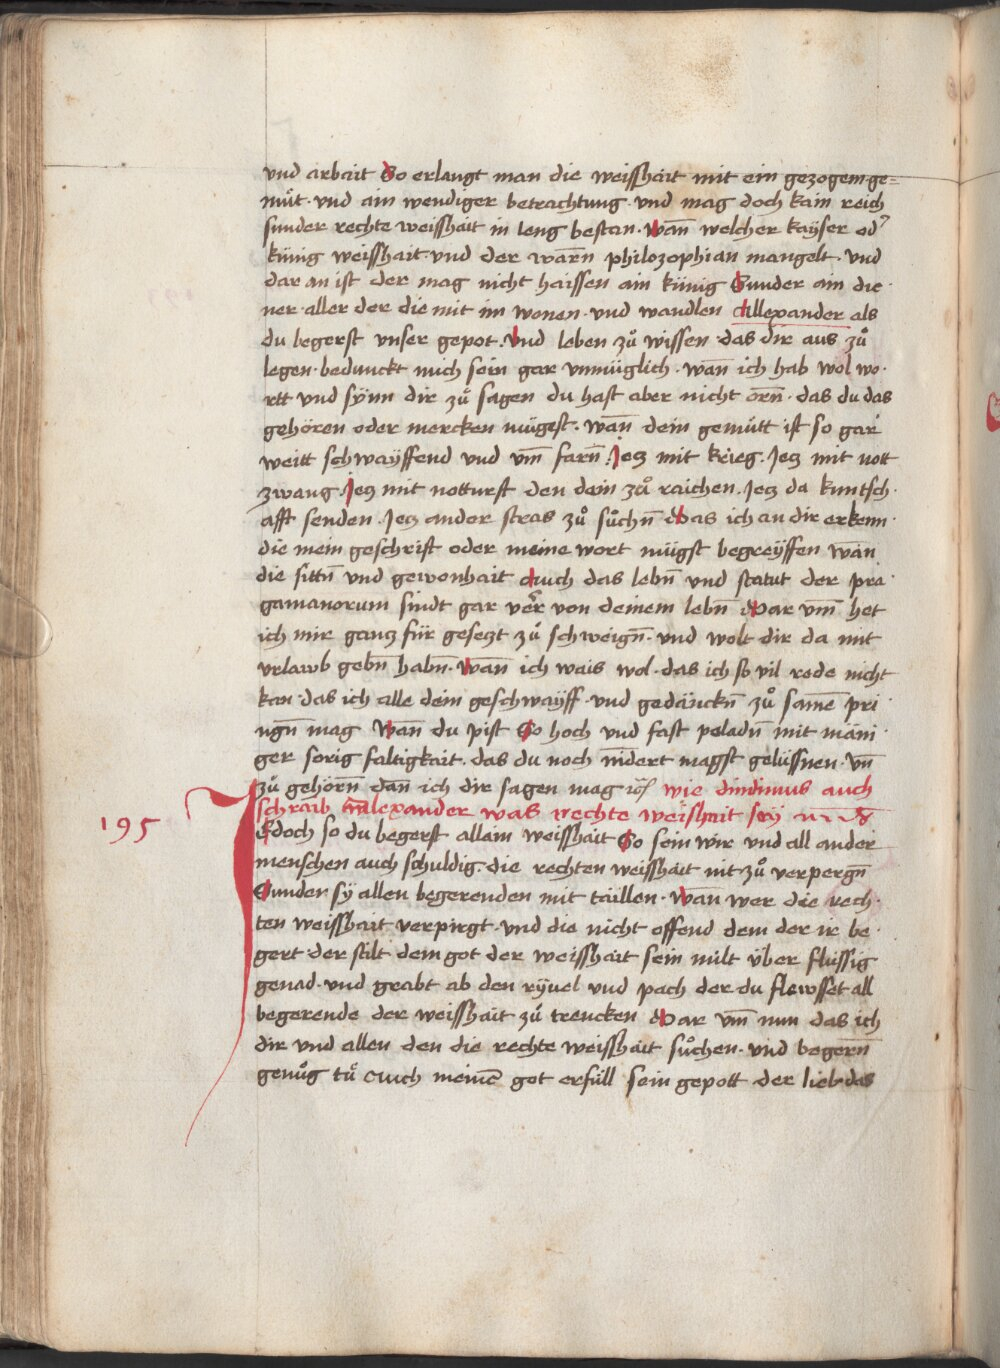 und arbait So erlangt man die weisshait mit ein gezogem ge=
müt · und ain wendiger betrachtung · und mag doch kain reich
sunder rechte weisshait in leng bestan · wan̄ welcher kayser od'
künig weisshait · und der warn̄ philozophian mangelt · und
dar an ist der mag nicht haissen ain künig Sunder ain die
ner · aller der die mit im wonen · und wandlen Allexander als
du begerst unser gepot · Und leben zů wissen · das dir aus zů
legen · bedunckt mich sein gar unmüglich · wan̄ ich hab wol wo·
rtt und sÿnn dir zů sagen du hast aber nicht orn̄ · das du das
gehören oder mercken mügest · wan̄ dein gemütt ist so gar
weitt schwayffend und um̄ farn̄ · Jetz mit krieg · Jetz mit nott
zwang · Jetz mit notturft den dein zů raichen · Jetz da kuntsch·
afft senden · Jetz ander stras zů sůchn̄ Das ich an dir erkenn·
die mein geschrift oder meine wort mügst begreÿffen wan̄
die sittn̄ und gewonhait Auch das lebn̄ und statut der pra·
gamanorum sindt gar verr von deinem lebn̄ Dar um̄ het
ich mir gantz für gesetzt zů schweign̄ · und wolt dir da mit
urlawb gebn̄ habn̄ · Wan̄ ich wais wol · das ich so vil rede nicht
kan · das ich alle dein geschwaÿff · und gedänckn̄ zů samē pri
ngn̄ mag Wan̄ du pist So hoch und fast peladn̄ mit mäni·
ger sorig faltigkait · das du noch nidert magst gelüssnen · un̄
zů gehörn̄ dan̄ ich dir sagen mag wie dindimus auch
schraib Allexander was rechte weishait seÿ
195
JEdoch so du begerst allain weisshait So sein wir und all ander
menschen auch schuldig · die rechten weisshait nit zů verpergn̄
Sunder sÿ allen begerenden mit taillen · Wan̄ wer die rech·
ten weisshait verpirgt · und die nicht offend dem der ir be·
gert · der stilt dem got der weisshait sein milt über flüssig
genad · und grabt ab den rÿvel und pach der du flewsset all
begerende der weisshait zů trencken Dar um̄ nun das ich
dir und allen den die rechte weisshait sůchen · und begern̄
genůg tů Auch meinē got erfüll sein gepott der lieb das